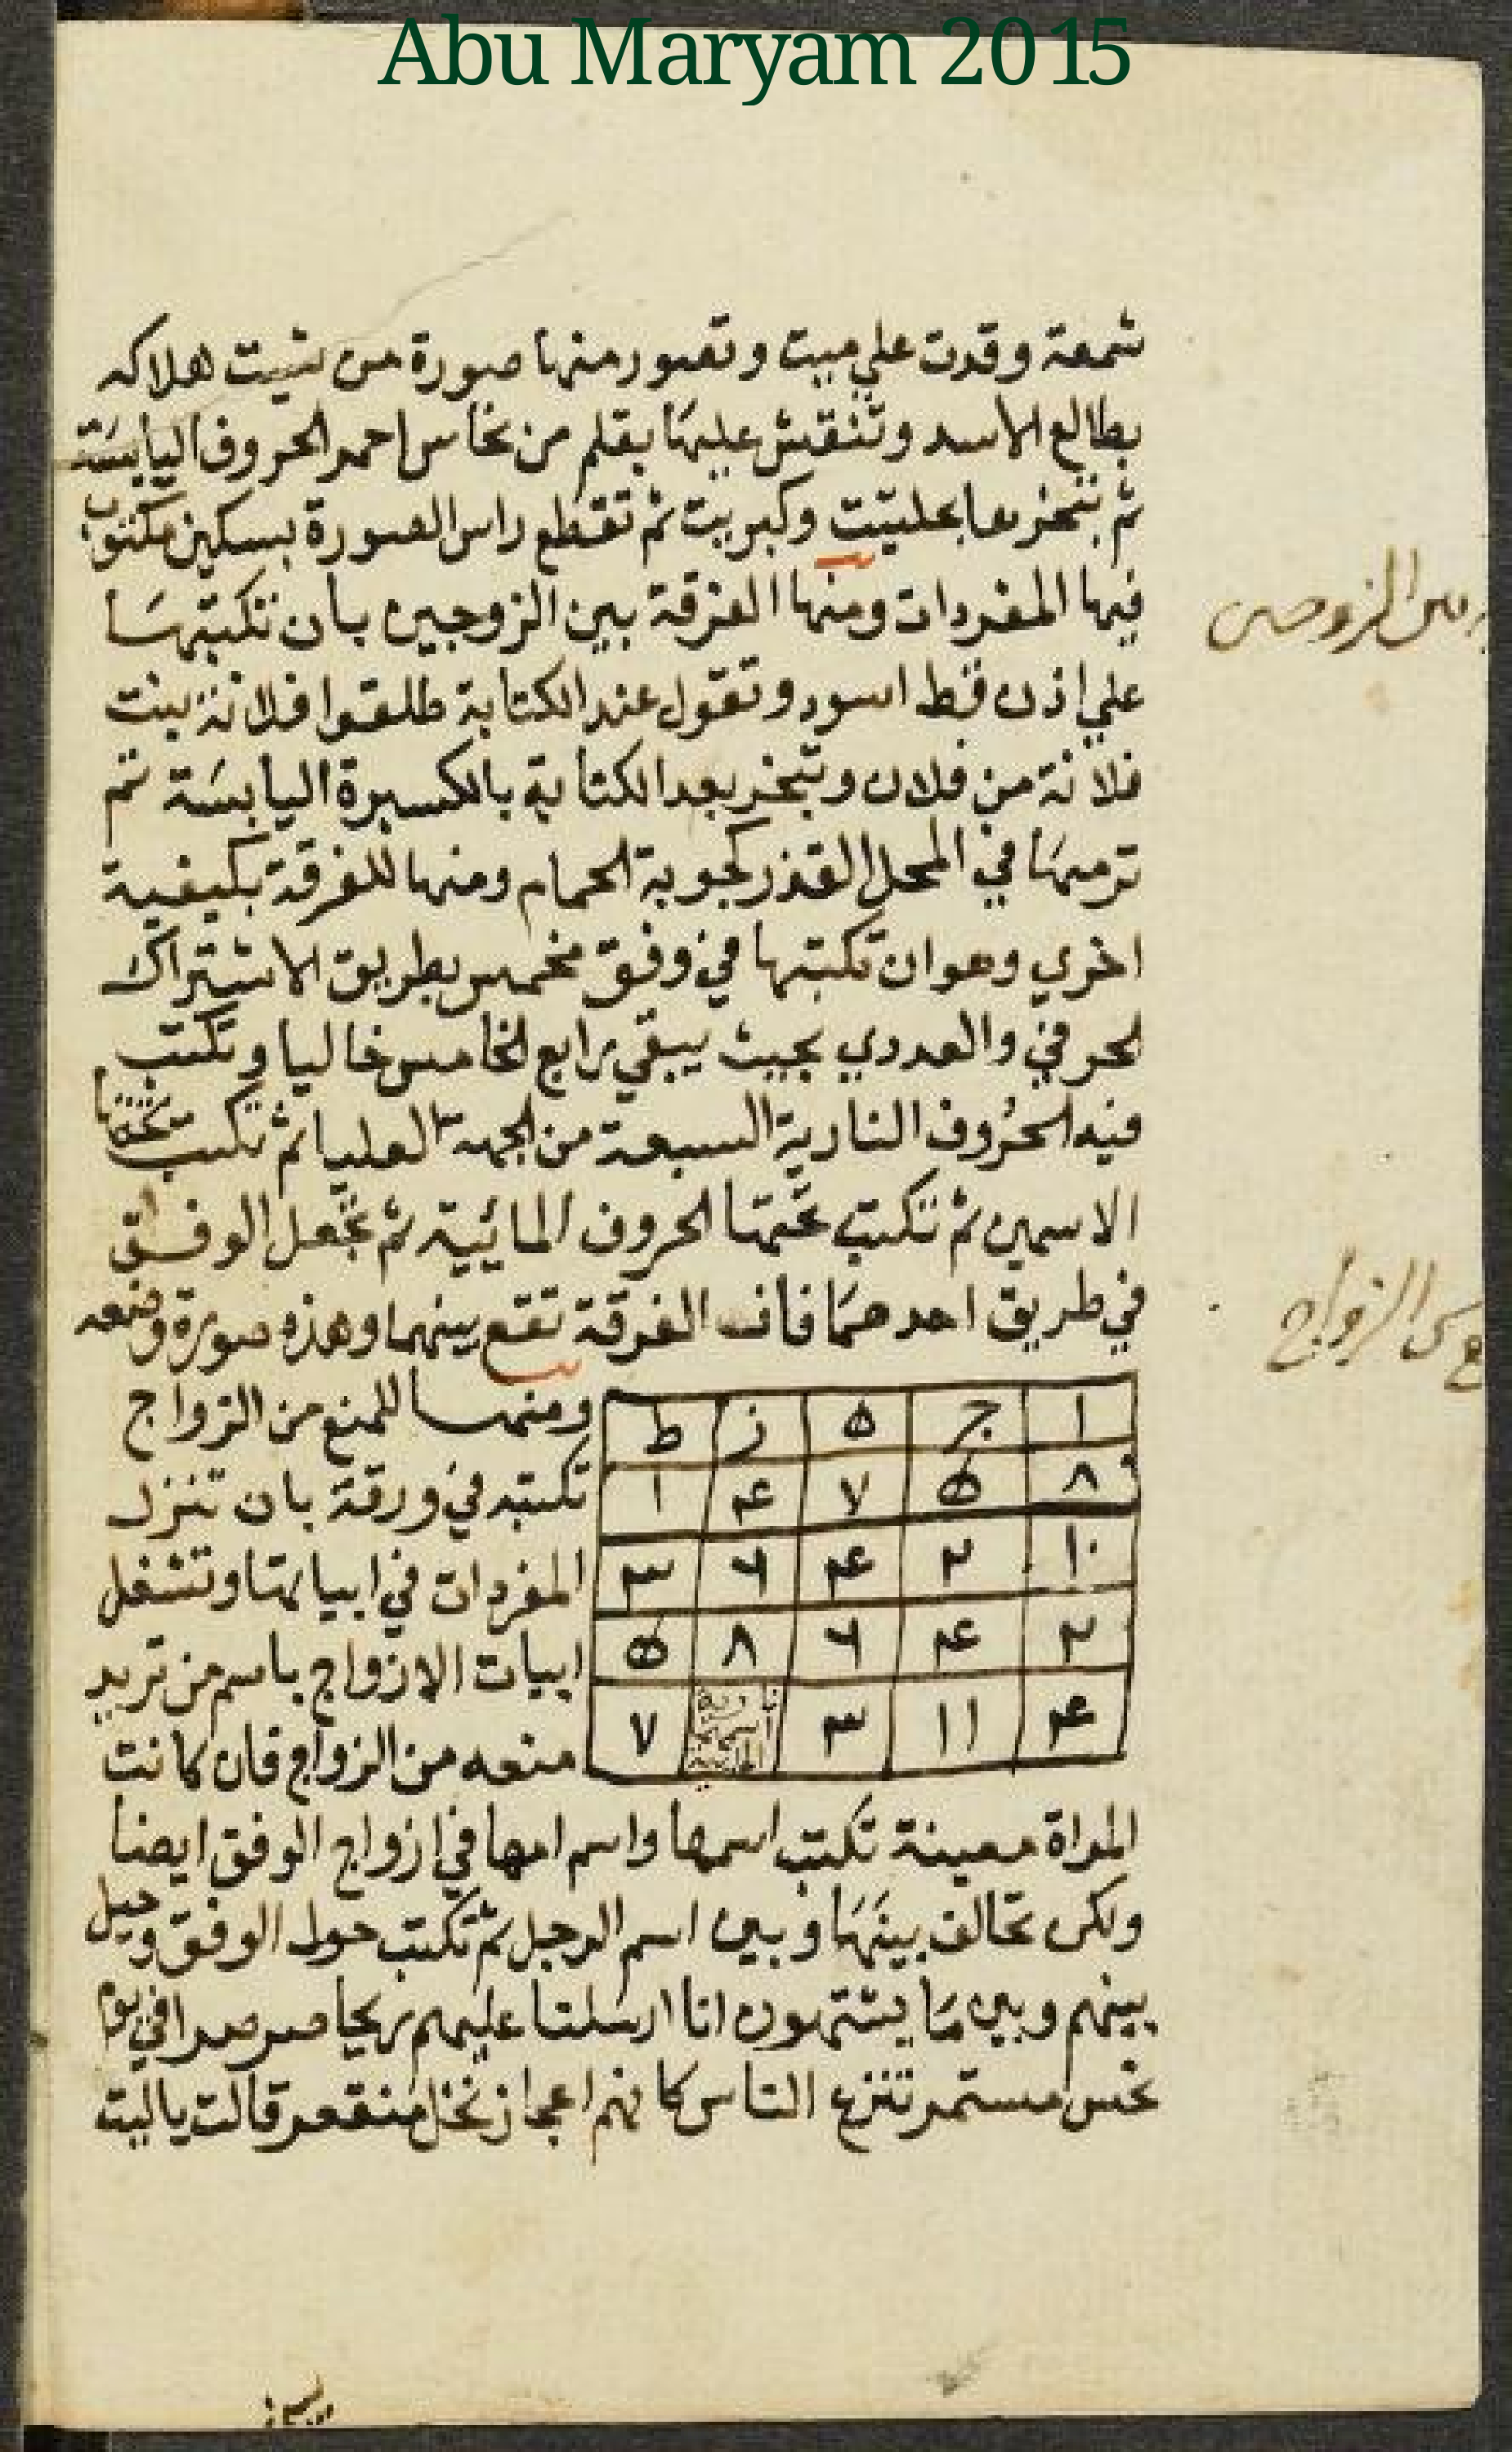 Abu Maryam 2015
شمعة وقدت علي ميت وتصور منها صورة من شيت هلاكه
بطالع الاسد وتنقش عليها بقلم من نحاس احمر الحروف اليابسة
ثم تبخرها بحلتيت وكبريت ثم تقطع راس الصورة بسكين مكتوب
فيها المفردات ومنها الفرقة بين الزوجين بان تكتبها
علي اذن قط اسود وتقول عند الكتابة طلقوا فلانة بنت
فلانة من فلان وتبخر بعد الكتابة بالكسبرة اليابسة ثم
ترميها في المحل القذر كجوبة الحمام ومنها للفرقة بكيفية
اخري وهو ان تكتبها في وفق مخمس بطريق الاشتراك
لحرفي والعددي بحيث يبقي رابع الخامس خاليا وتكتب
فيه الحروف النارية السبعة من الجهة العليا ثم تكتب تحتها
الاسمين ثم تكتب تحتها الحروف المائية ثم تجعل الوفق
في طريق احدهما فان الفرقة تقع بينهما وهذه صورة وضعه
ا ج ه ز ط
٨ ٥ ٧ ۴ ١
١٠ ٢ ۴ ٦ ٣
٢ ۴ ٦ ٨ ٥
۴ ١١ ٣ ٧
ومنها للمنع من الزواج
تكتبه في ورقة بان تنزل
المفردات في ابياتها وتشغل
ابيات الازواج باسم من تريد
منعه من الزواج فان كانت
المراة معينة تكتب اسمها واسم امها في ازواج الوفق ايضا
ولكن تخالف بينها وبين اسم الرجل ثم تكتب حول الوفق وحيل
بينهم وبين ما يشتهون انا ارسلنا عليهم ريحا صرصرا في يوم
نحس مستمر تنزع الناس كانهم اعجاز نخل منقعر قالت ياليت
بين الزوجين
الزواج